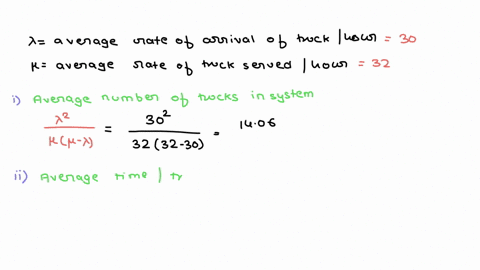 λ= average rate of arrival of truck / hour = 30
μ= average rate of truck served / hour = 32
i) Average number of trucks in system
λ² / μ(μ-λ) = 30² / 32(32-30) = 14.06
ii) Average time / tr